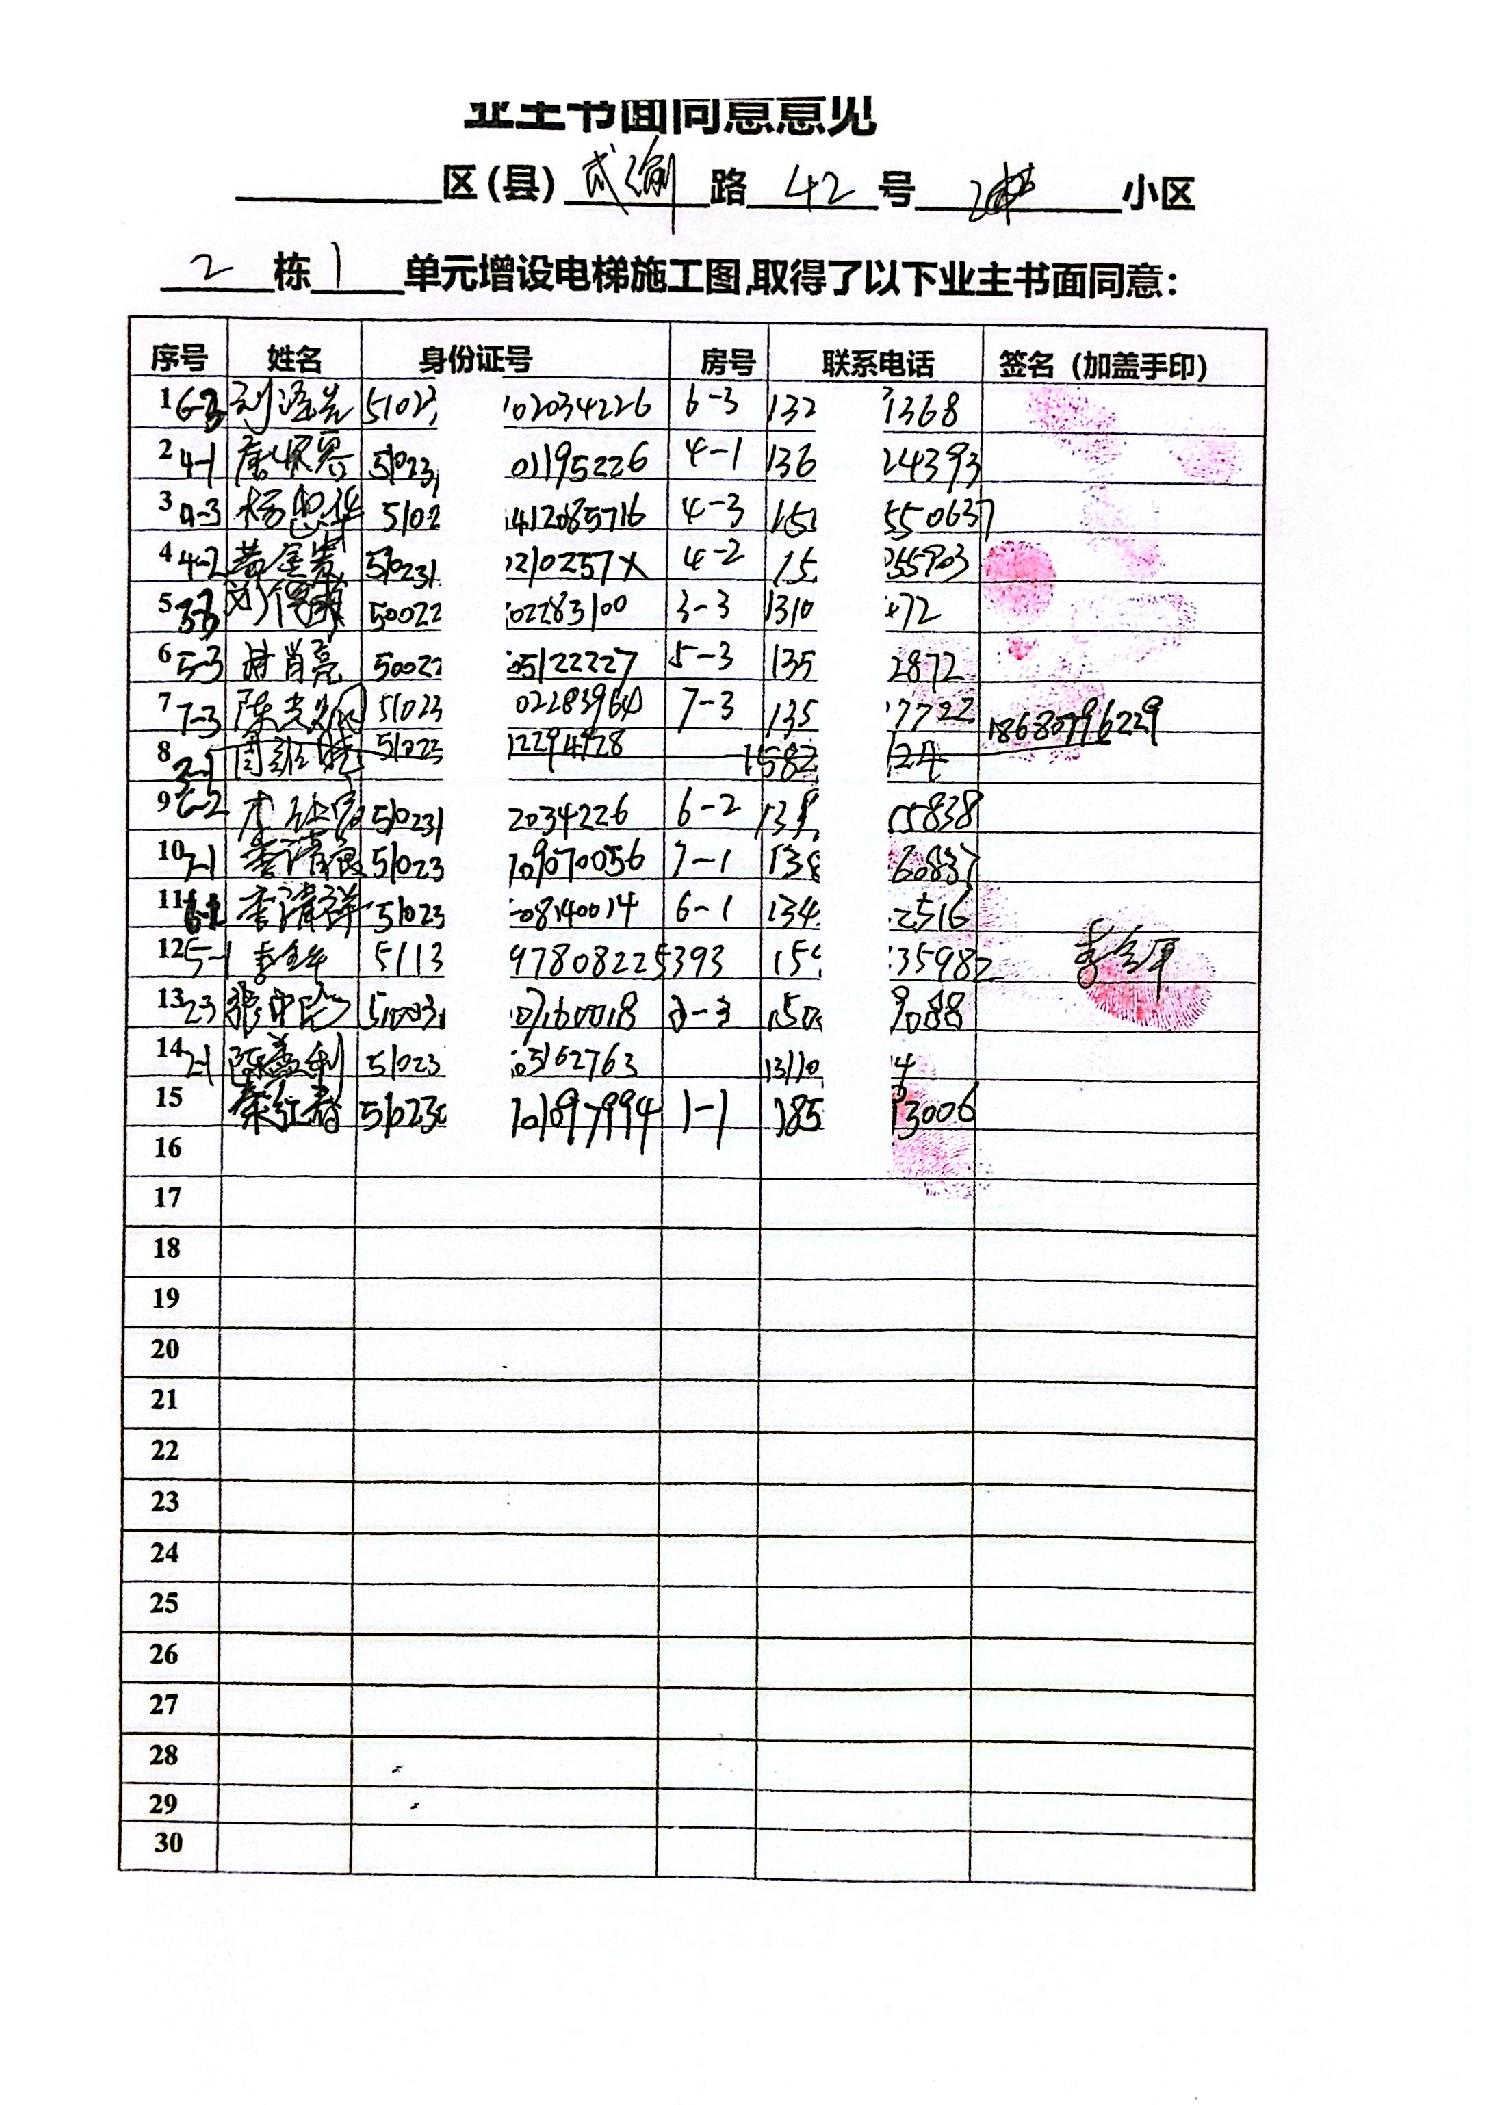 业主书面同意意见
区(县) 成渝 路 42 号 小区
2 栋 1 单元增设电梯施工图,取得了以下业主书面同意:
序号 姓名 身份证号 房号 联系电话 签名(加盖手印)
1 6-3 51023 102034226 6-3 132 1368
2 4-1 51023 01195226 4-1 136 24393
3 4-3 杨忠华 5102 412085716 4-3 151 550637
4 4-2 黄金贵 510231 210257X 4-2 15 055903
5 3-3 50022 02283100 3-3 1310 472
6 5-3 肖亮 50022 05122227 5-3 135 2872
7 7-3 陈 51023 02283964 7-3 135 7722 18680796229
8 2-1 周 51023 12294928 1582 124
9 6-2 李 510231 2034226 6-2 138 55838
10 7-1 李清良 51023 109070056 7-1 138 60837
11 6-1 李清祥 51023 08140014 6-1 134 2516
12 5-1 李全平 5113 97808225393 159 35982 李全平
13 2-3 张中 51003 07160018 2-3 150 9088
14 2-1 陈孟利 51023 05162763 13110 4
15 秦红春 51023 101097994 1-1 185 93006
16
17
18
19
20
21
22
23
24
25
26
27
28
29
30